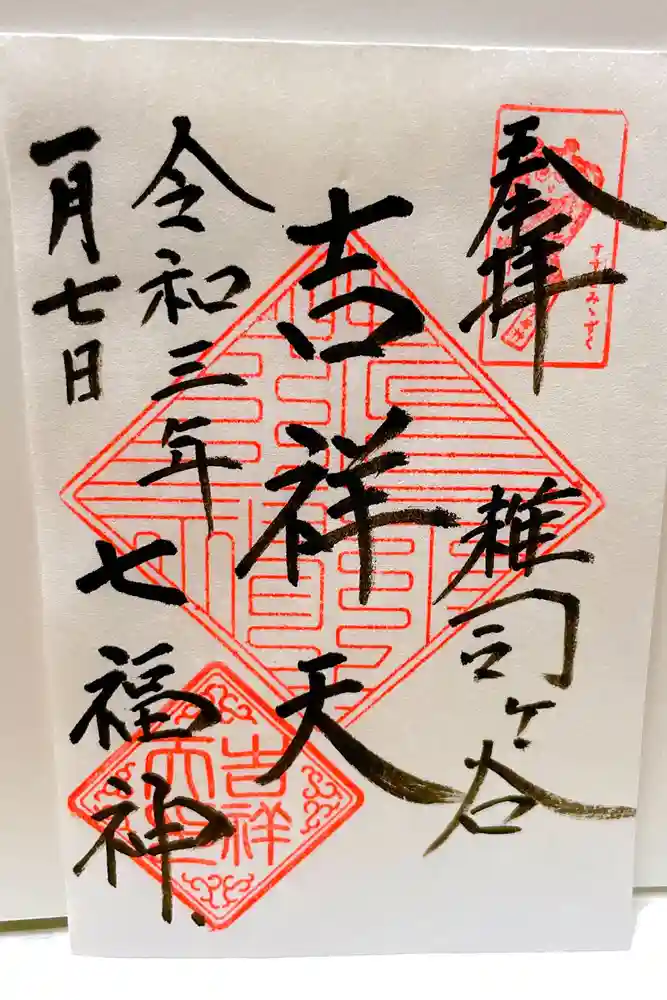 奉拝
すすきみゝずく
雑司ヶ谷
吉祥天
令和三年
一月七日
七福神
吉祥